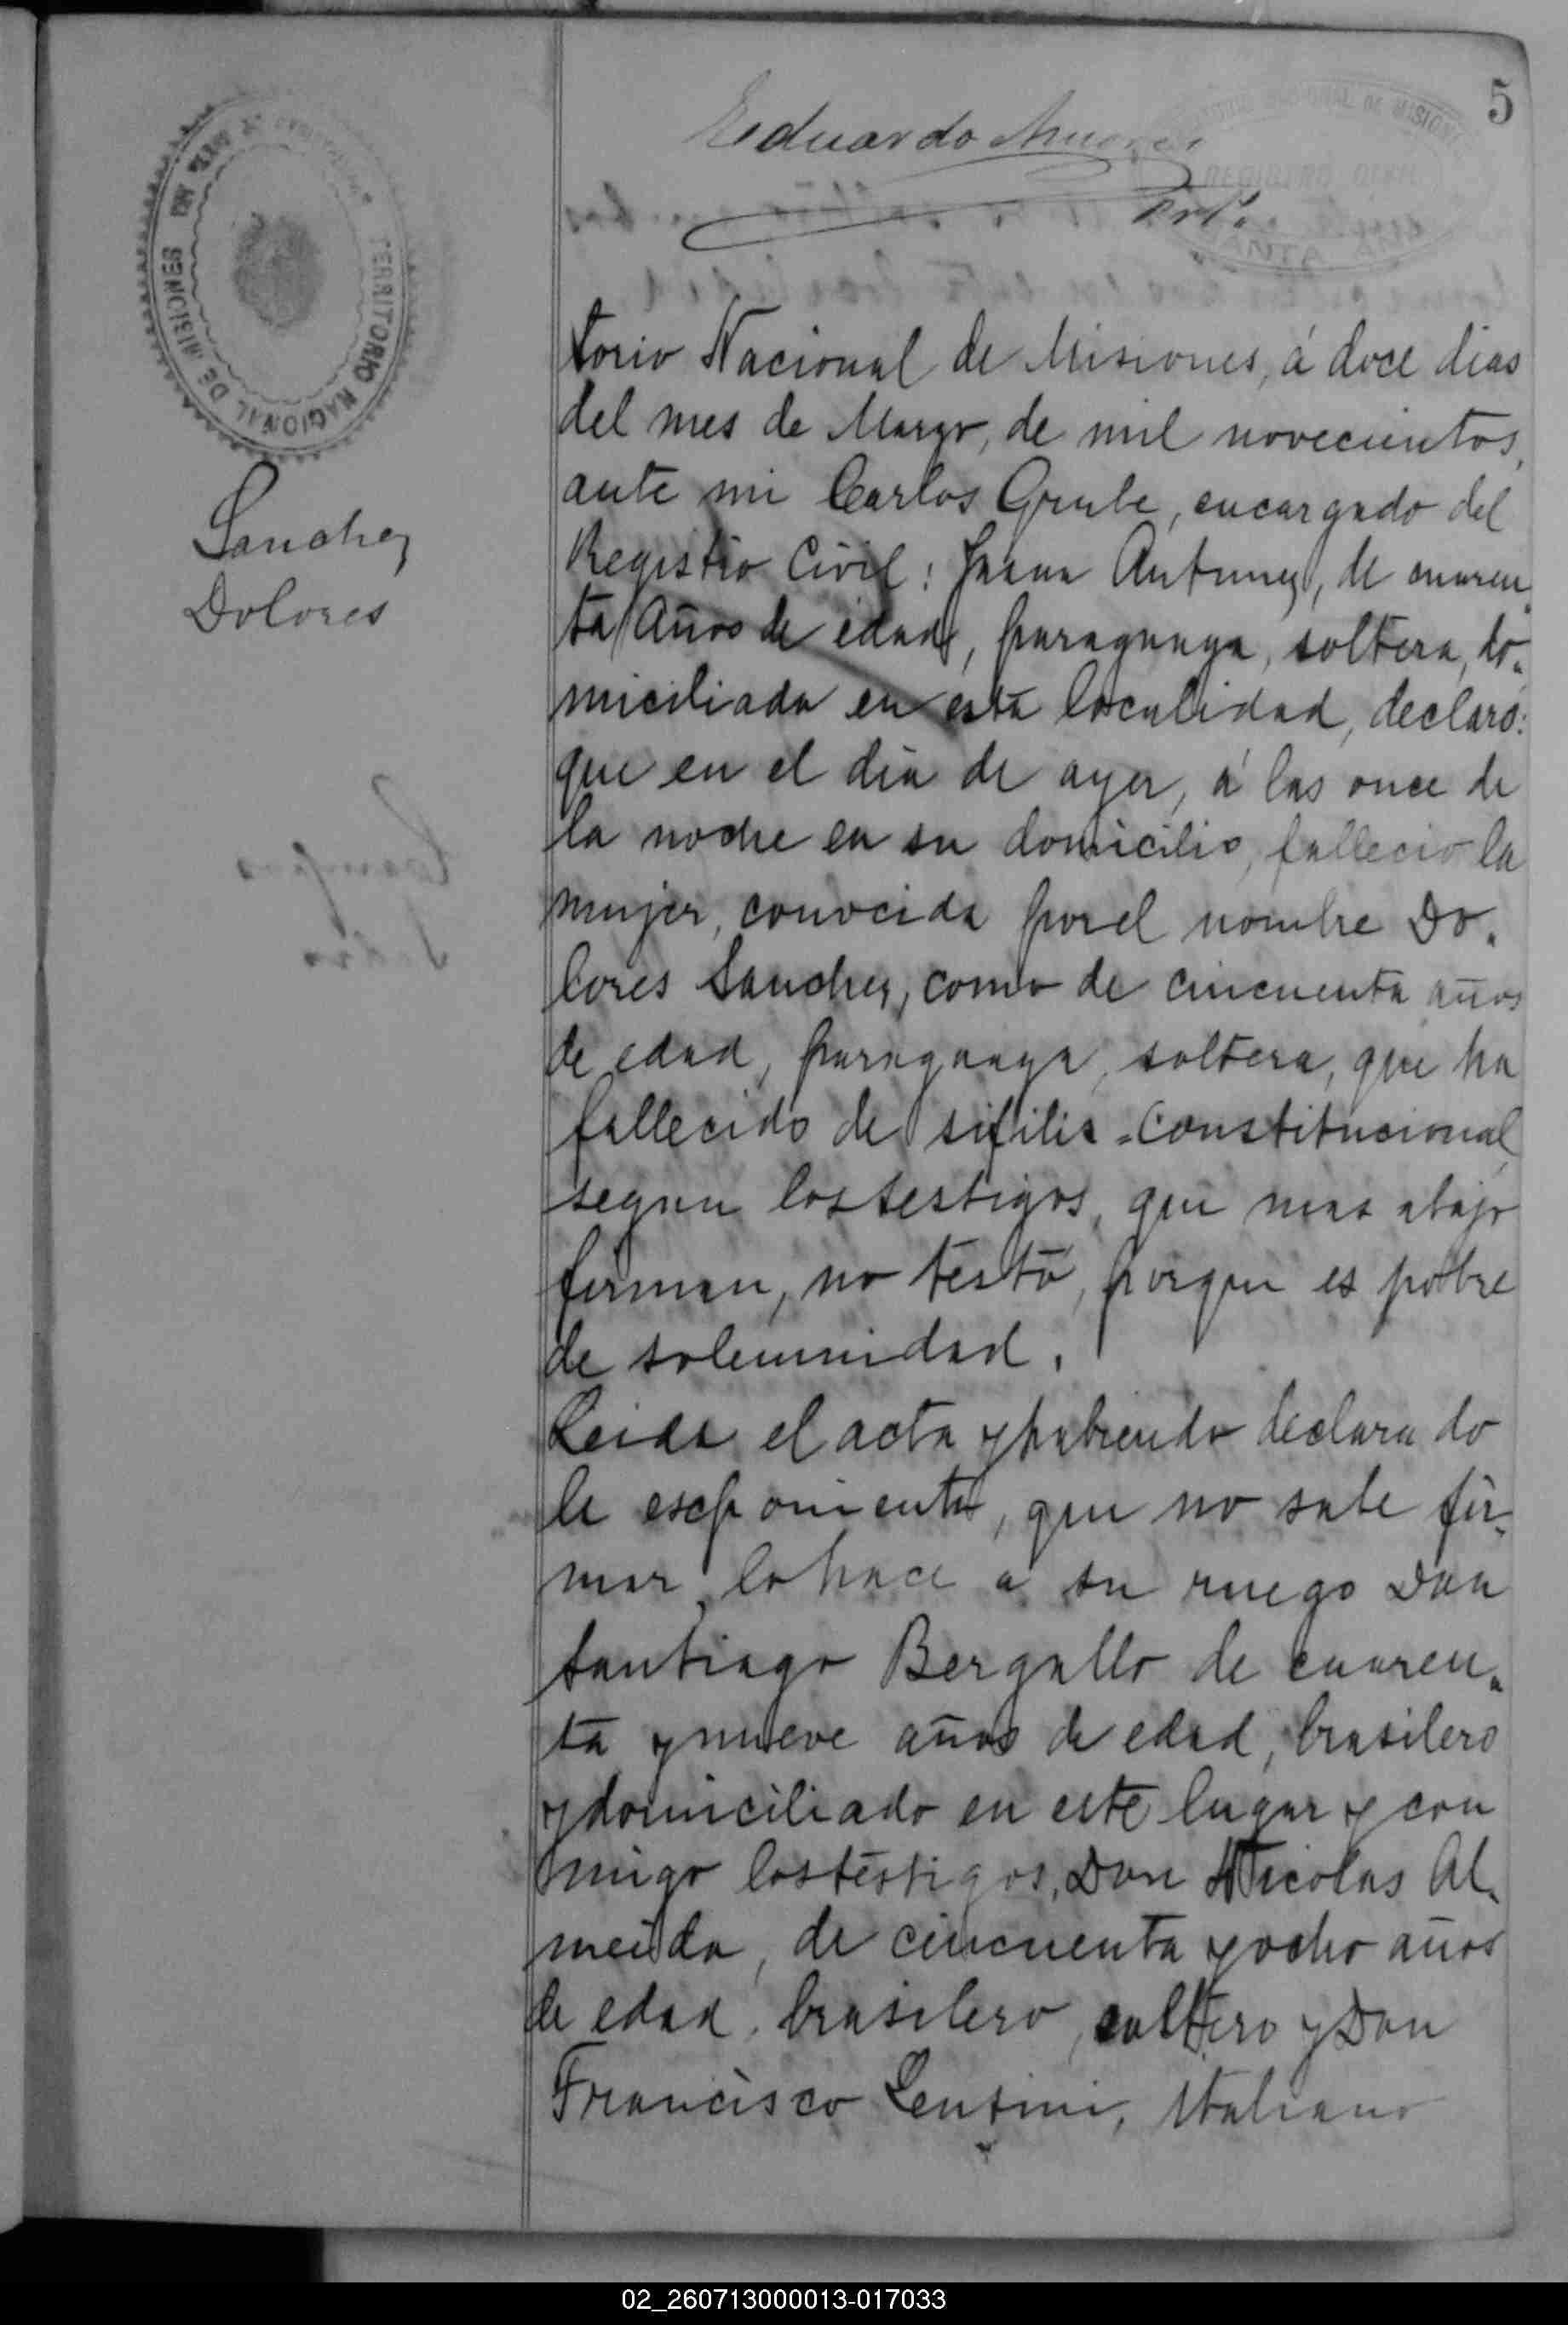 5
Eduardo
TERRITORIO NACIONAL DE MISIONES
Sanchez
Dolores
torio Nacional de Misiones, á doce dias
del mes de Marzo, de mil novecientos,
ante mi Carlos Grube, encargado del
Registro Civil: Juana Antunez, de cuaren
ta años de edad, paraguaya, soltera, do-
miciliada en esta localidad, declaró:
que en el dia de ayer, á las once de
la noche en su domicilio, fallecio la
mujer, conocida por el nombre Do-
lores Sanchez, como de cincuenta años
de edad, paraguaya, soltera, que ha
fallecido de sifilis-constitucional
segun los testigos, que mas abajo
firman, no testó, porque es pobre
de solemnidad.
Leida el acta y habiendo declarado
le esponente, que no sabe fir-
mar, lo hace a su ruego Don
Santiago Bergallo de cuaren-
ta y nueve años de edad, brasilero
y domiciliado en este lugar y con
migo los testigos, Don Nicolas Al-
meida, de cincuenta y ocho años
de edad, brasilero, soltero y Don
Francisco Lentini, Italiano
02_260713000013-017033